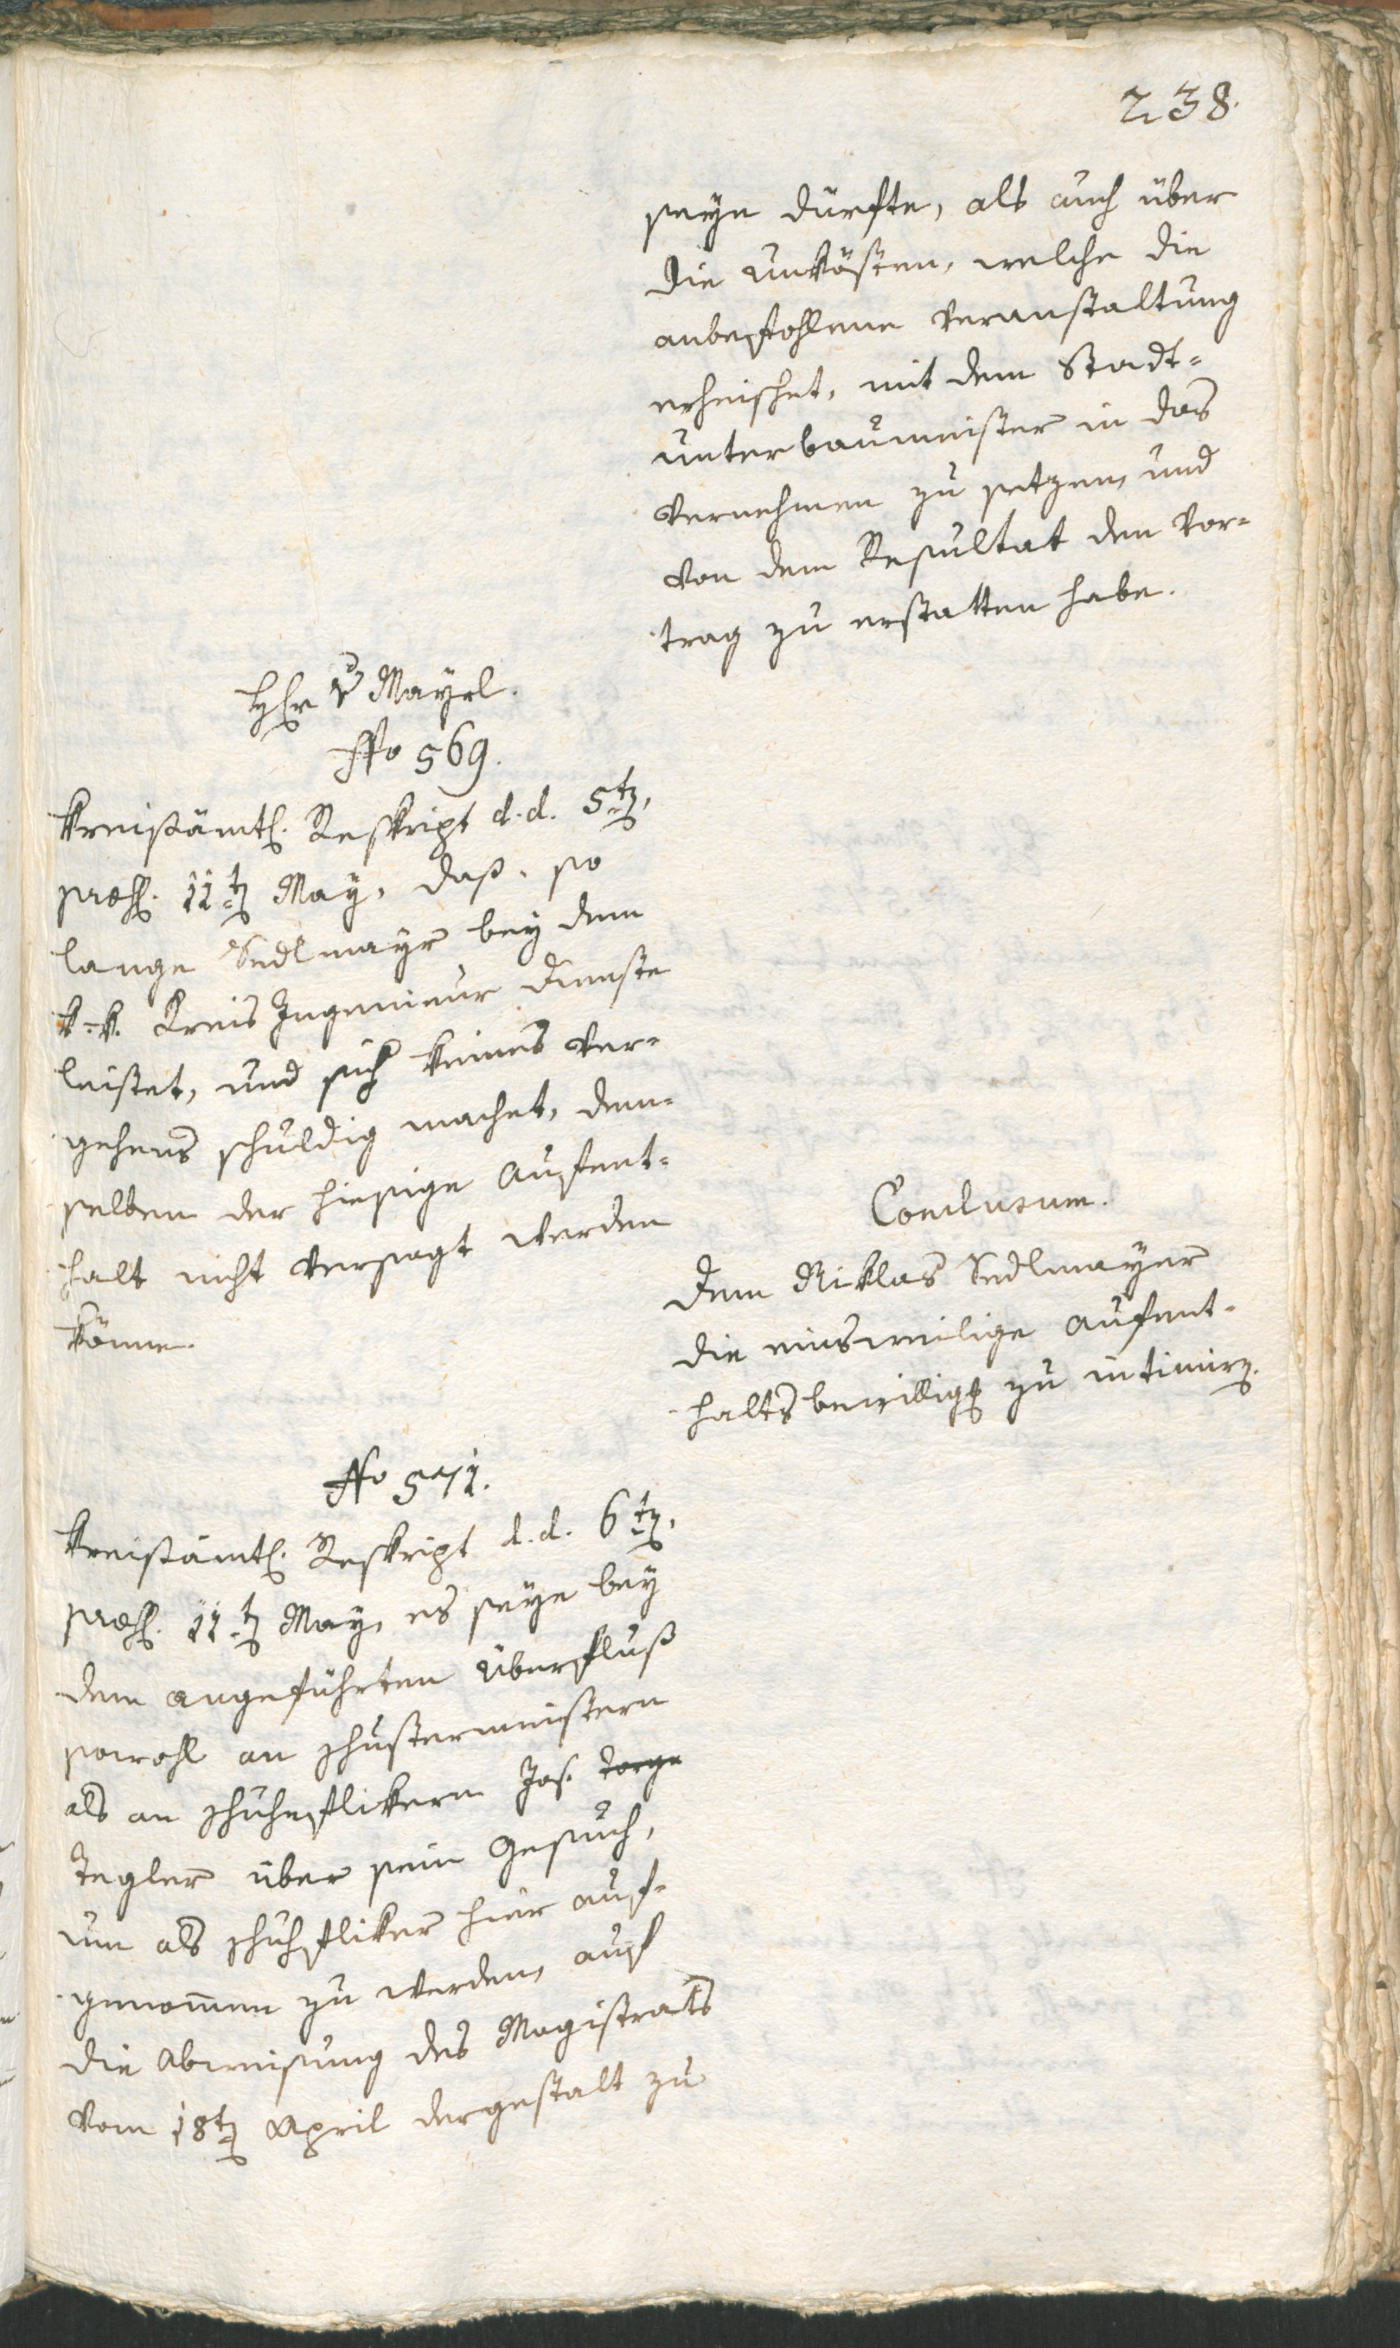 238.
seyn dürfte, als auch über
die Unkösten, welche die
anbefohlene Veranstaltung
erheischet, mit dem Stadt=
unterbaumeister in das
Vernehmen zu setzen, und
von dem Resultat den Vor=
trag zu erstatten habe.
H Hr v Mayrl.
No 569.
Kreisämtl. Reskript d. d. 5ten,
praes. 11ten May, daß, so
lange Sedlmayr bey dem
k=k. Kreis Ingenieur Dienste
leistet, und sich keines Ver=
gehens schuldig machet, dem=
selben der hiesige Aufent=
halt nicht versagt werden
könne.
Conclusum.
Dem Niklas Sedlmayer
die einsweilige Aufent=
haltsbewilligg zu intimiren.
No 571.
Kreisämtl. Reskript d. d. 6ten,
praes. 11ten May, es seye bey
dem angeführten Überfluß
sowohl an Schustermeistern
als an Schuhflikern Jos. Torge
Tegler über sein Gesuch,
um als Schuhfliker hier auf=
genommen zu werden, auf
die Abweisung des Magistrats
vom 18ten April dergestalt zu